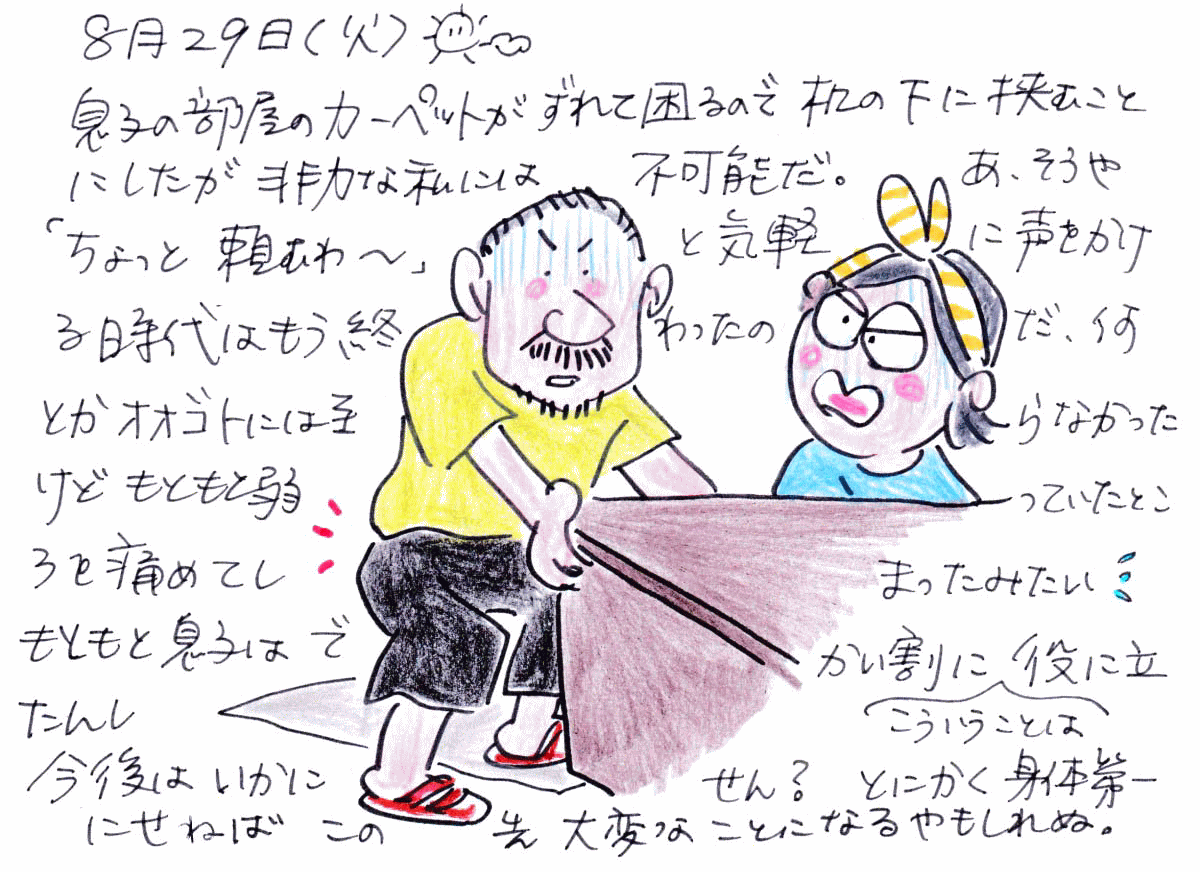 8月29日(火)
息子の部屋のカーペットがずれて困るので机の下に挟むこと
にしたが非力な私には不可能だ。あ、そうや
「ちょっと頼むわ〜」と気軽に声をかけ
る時代はもう終わったのだ、何
とかオオゴトには至らなかった
けどもともと弱っていたとこ
ろを痛めてしまったみたい
もともと息子はでかい割に役に立
たんし こういうことは
今後はいかにせん? とにかく身体第一
にせねばこの先大変なことになるやもしれぬ。